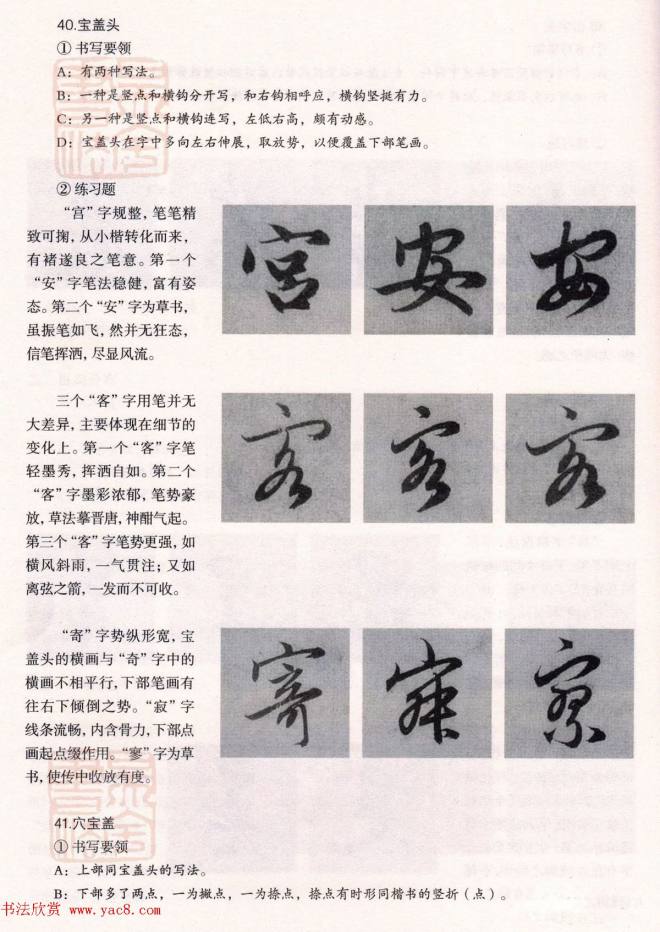 40.宝盖头
① 书写要领
A：有两种写法。
B：一种是竖点和横钩分开写，和右钩相呼应，横钩坚挺有力。
C：另一种是竖点和横钩连写，左低右高，颇有动感。
D：宝盖头在字中多向左右伸展，取放势，以便覆盖下部笔画。
② 练习题
“宫”字规整，笔笔精
致可掬，从小楷转化而来，
有褚遂良之笔意。第一个
“安”字笔法稳健，富有姿
态。第二个“安”字为草书，
虽振笔如飞，然并无狂态，
信笔挥洒，尽显风流。
宫 安 安
三个“客”字用笔并无
大差异，主要体现在细节的
变化上。第一个“客”字笔
轻墨秀，挥洒自如。第二个
“客”字墨彩浓郁，笔势豪
放，草法摹晋唐，神酣气起。
第三个“客”字笔势更强，如
横风斜雨，一气贯注；又如
离弦之箭，一发而不可收。
客 客 客
“寄”字势纵形宽，宝
盖头的横画与“奇”字中的
横画不相平行，下部笔画有
往右下倾倒之势。“寂”字
线条流畅，内含骨力，下部点
画起点缀作用。“寥”字为草
书，使传中收放有度。
寄
41.穴宝盖
① 书写要领
A：上部同宝盖头的写法。
B：下部多了两点，一为撇点，一为捺点，捺点有时形同楷书的竖折（点）。
书法欣赏 www.yac8.com